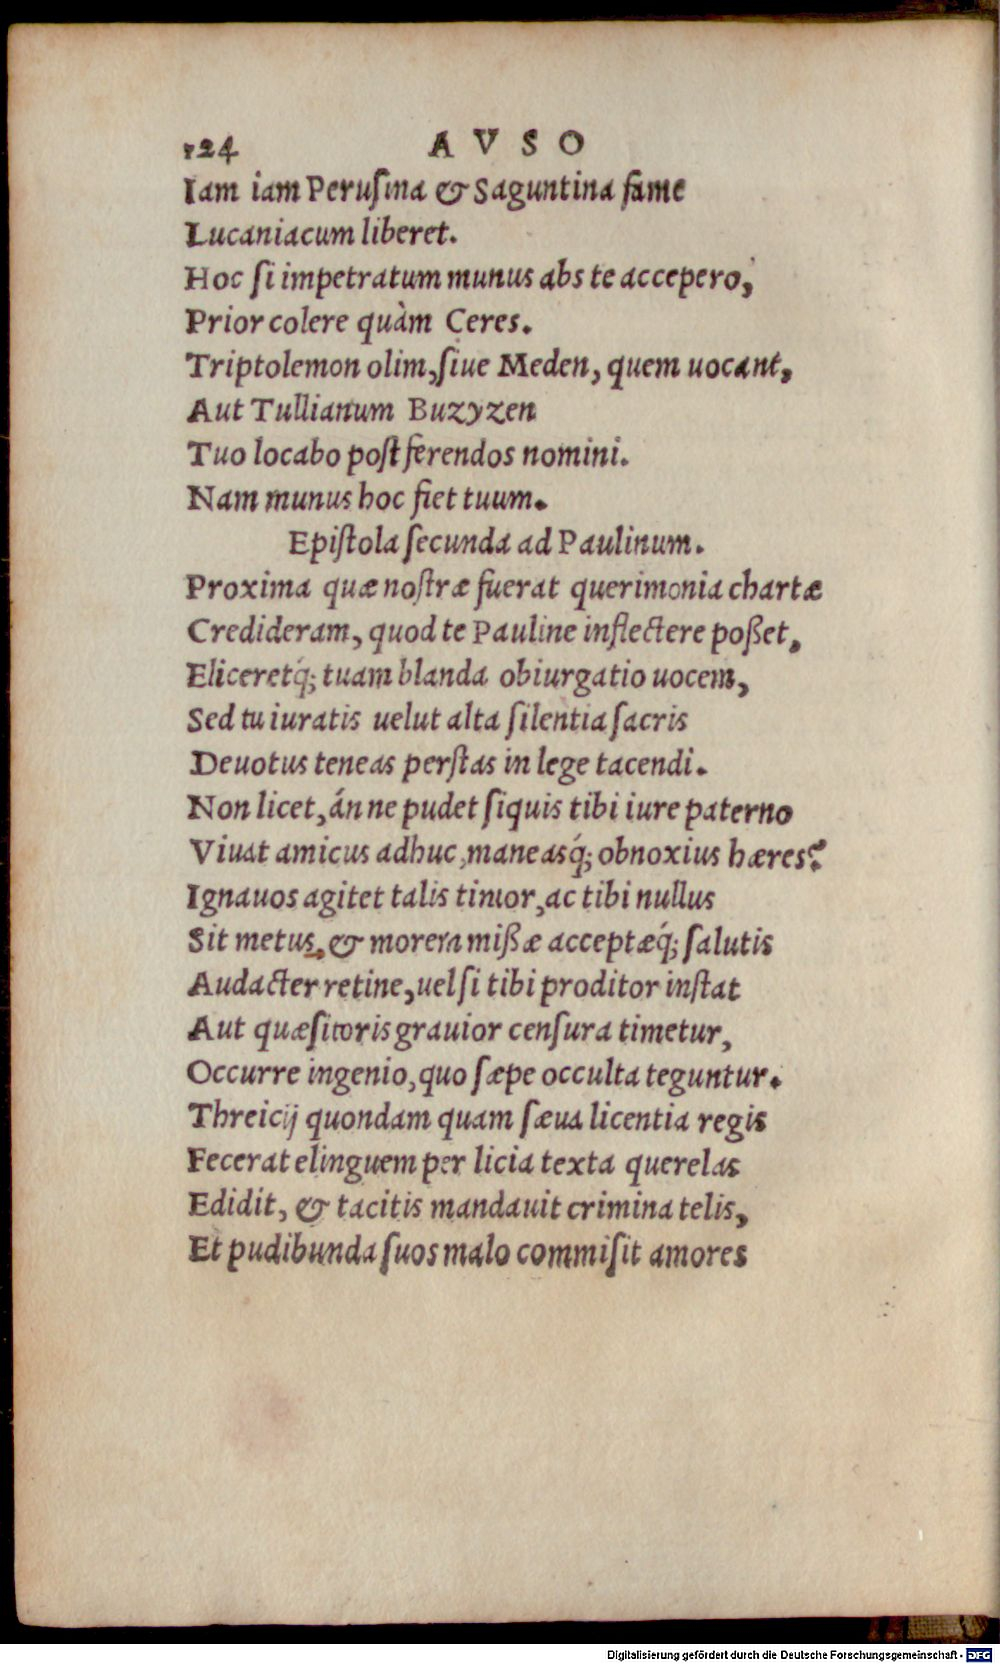 124 AVSO
Iam iam Perusina & Saguntina fame
Lucaniacum liberet.
Hoc si impetratum munus abs te accepero,
Prior colere quàm Ceres.
Triptolemon olim, siue Meden, quem uocant,
Aut Tullianum Buzyzen
Tuo locabo post ferendos nomini.
Nam munus hoc fiet tuum.
Epistola secunda ad Paulinum.
Proxima quæ nostræ fuerat querimonia chartæ
Credideram, quod te Pauline inflectere poßet,
Eliceretq́; tuam blanda obiurgatio uocem,
Sed tu iuratis uelut alta silentia sacris
Deuotus teneas perstas in lege tacendi.
Non licet, án ne pudet siquis tibi iure paterno
Viuat amicus adhuc, maneasq́; obnoxius hæres?
Ignauos agitet talis timor, ac tibi nullus
Sit metus, & morem mißæ acceptæq́; salutis
Audacter retine, uel si tibi proditor instat
Aut quæsitoris grauior censura timetur,
Occurre ingenio, quo sæpe occulta teguntur.
Threicij quondam quam sæua licentia regis
Fecerat elinguem per licia texta querelas
Edidit, & tacitis mandauit crimina telis,
Et pudibunda suos malo commisit amores
Digitalisierung gefördert durch die Deutsche Forschungsgemeinschaft - DFG